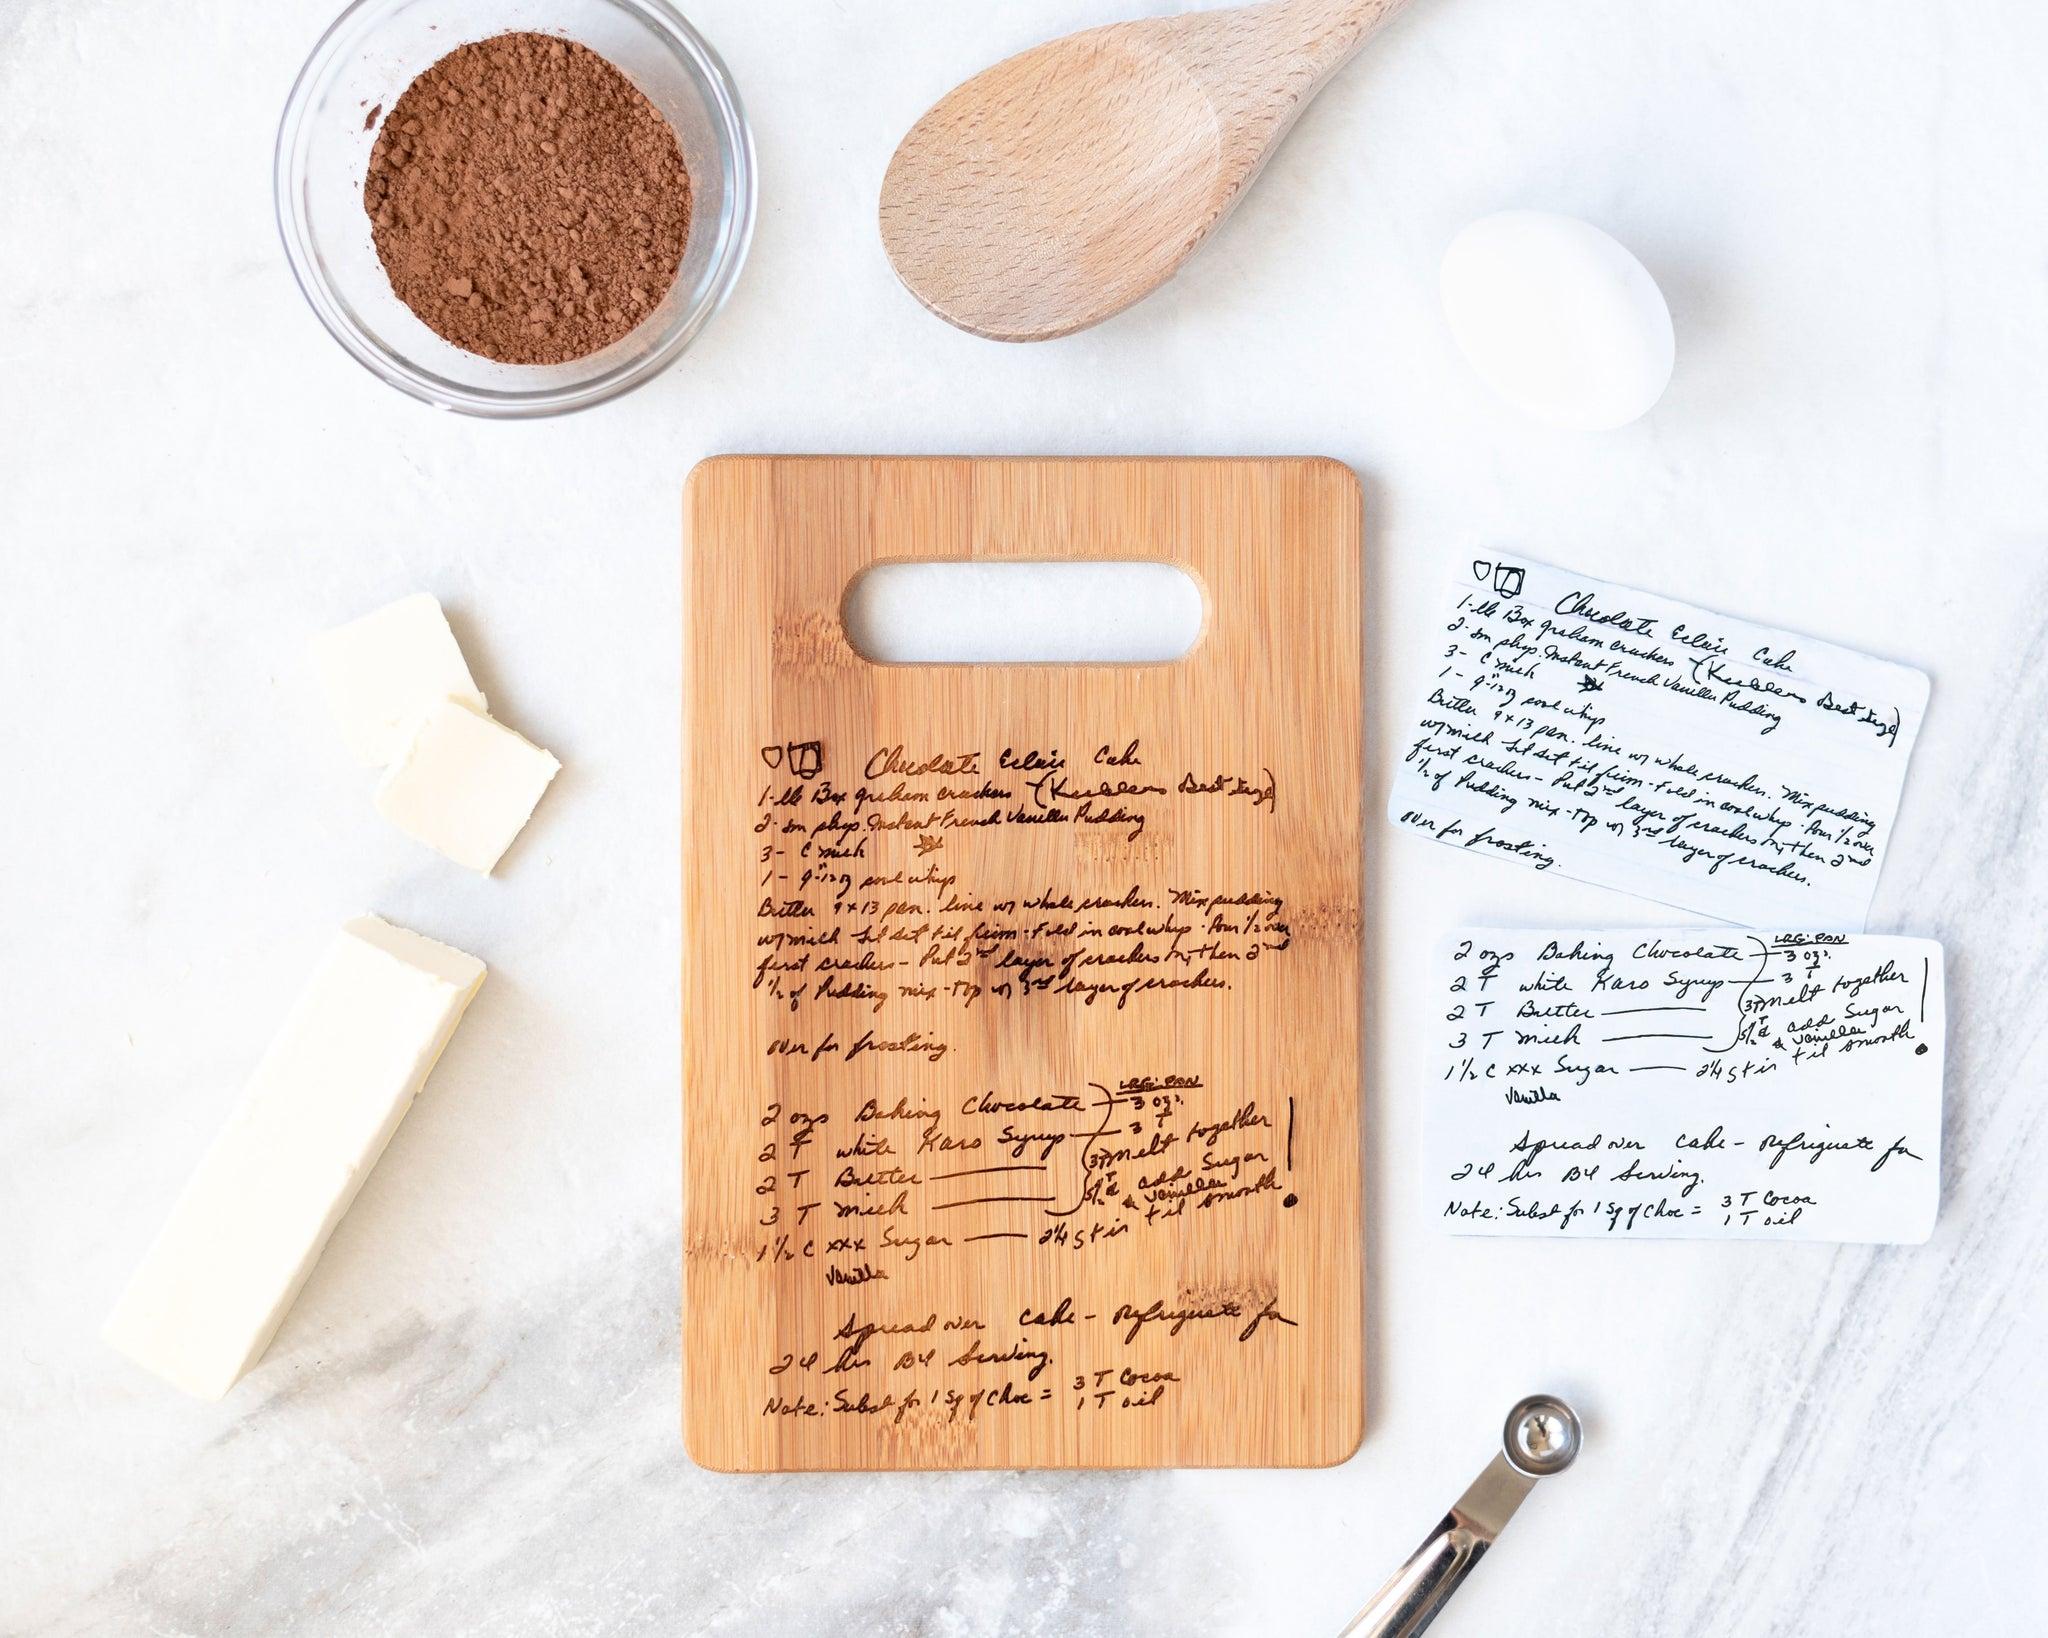 Chocolate Eclair Cake
1-lb Box graham crackers (Keeblers Best
2- sm pkgs. Instant French Vanilla Pudding
3- C milk
1- 9-12 oz cool whip
Butter 9x13 pan. line w/ whole crackers. Mix pudding
w/ milk Let set til firm - Fold in cool whip - Pour 1/2 over
first crackers - Put 2nd layer of crackers on, then 2nd
1/2 of Pudding mix - top w/ 3rd layer of crackers.
over for frosting.
LRG. PAN
2 ozs Baking Chocolate — 3 ozs.
2 T white Karo Syrup — 3 T
2 T Butter — 3T melt together
3 T milk — add Sugar
& vanilla
1 1/2 C xxx Sugar — 2 1/4 stir til smooth
Vanilla
Spread over cake - refrigerate for
24 hrs B4 Serving.
Note: Subst for 1 Sq of Choc = 3 T Cocoa
1 T oil
Chocolate Eclair Cake
1-lb Box graham crackers (Keeblers Best
2- sm pkgs. Instant French Vanilla Pudding
3- C milk
1- 9-12 oz cool whip
Butter 9x13 pan. line w/ whole crackers. Mix pudding
w/ milk Let set til firm - Fold in cool whip - Pour 1/2 over
first crackers - Put 2nd layer of crackers on, then 2nd
1/2 of Pudding mix - top w/ 3rd layer of crackers.
over for frosting.
LRG. PAN
2 ozs Baking Chocolate — 3 ozs.
2 T white Karo Syrup — 3 T
2 T Butter — 3T melt together
3 T milk — add Sugar
& vanilla
1 1/2 C xxx Sugar — 2 1/4 stir til smooth
Vanilla
Spread over cake - refrigerate for
24 hrs B4 Serving.
Note: Subst for 1 Sq of Choc = 3 T Cocoa
1 T oil